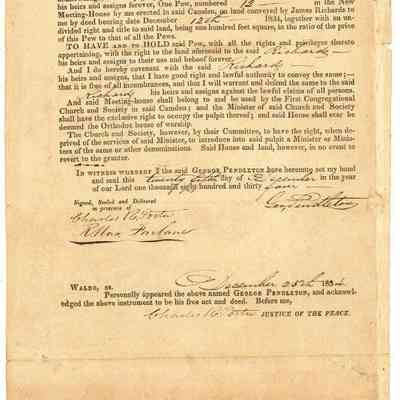 his heirs and assigns forever, One Pew, numbered 12 in the New
Meeting-House by me erected in Camden, on land conveyed by James Richards to
me by deed bearing date December 12th 1834, together with an un-
divided right and title to said land, being one hundred feet square, in the ratio of the price
of this Pew to that of all the Pews.
TO HAVE AND TO HOLD said Pew, with all the rights and privileges thereto
appertaining, with the right to the land aforesaid to the said Richards
his heirs and assigns to their use and behoof forever.
And I do hereby covenant with the said Richards
his heirs and assigns, that I have good right and lawful authority to convey the same;
that it is free of all incumbrances, and that I will warrant and defend the same to the said
Richards his heirs and assigns against the lawful claims of all persons.
And said Meeting-house shall belong to and be used by the First Congregational
Church and Society in said Camden; and the Minister of said Church and Society
shall have the exclusive right to occupy the pulpit thereof; and said House shall ever be
deemed the Orthodox house of worship.
The Church and Society, however, by their Committee, to have the right, when depri-
ved of the services of said Minister, to introduce into said pulpit a Minister or Minis-
ters of the same or other denominations. Said House and land, however, in no event to
revert to the grantor.
IN WITNESS WHEREOF I the said GEORGE PENDLETON have hereunto set my hand
and seal this twenty fifth day of December in the year
of our Lord one thousand eight hundred and thirty four
Signed, Sealed and Delivered
in presence of
Geo Pendleton
Charles R. Porter
WALDO, ss. December 25th 1834
Personally appeared the above named GEORGE PENDLETON, and acknowl-
edged the above instrument to be his free act and deed. Before me,
Charles R. Porter JUSTICE OF THE PEACE.